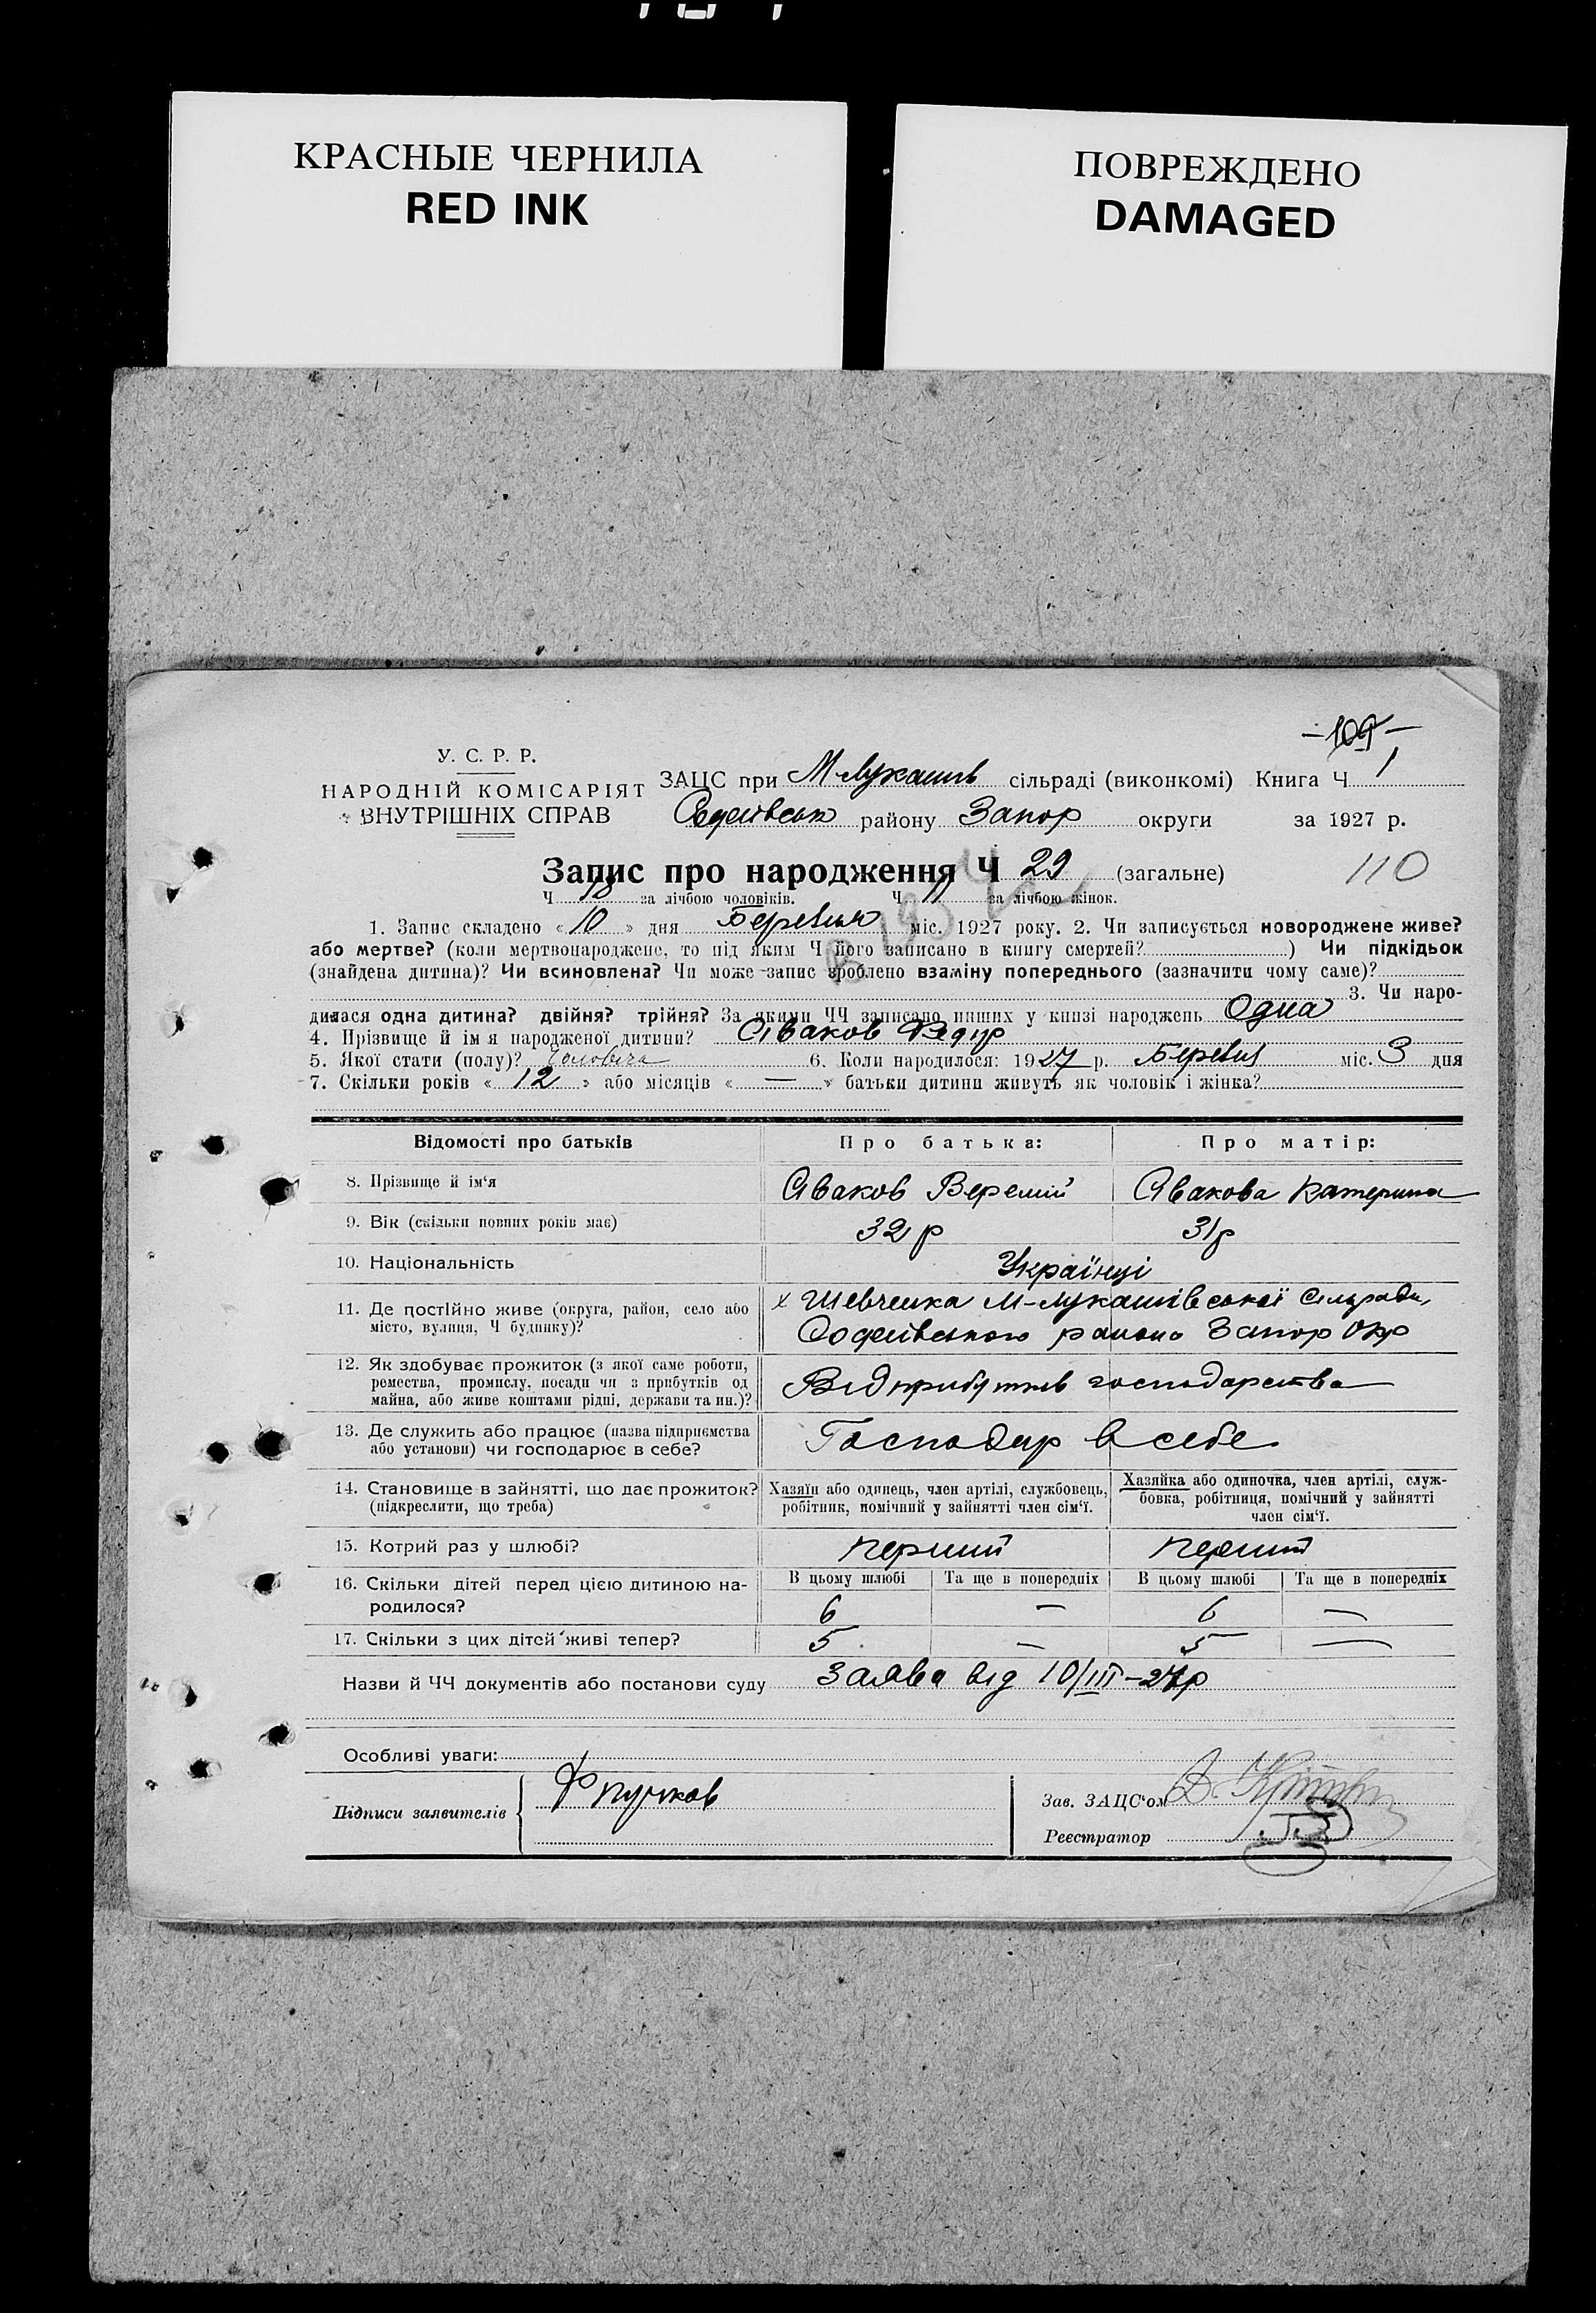 КРАСНЫЕ ЧЕРНИЛА
RED INK
ПОВРЕЖДЕНО
DAMAGED
- 109 -
У. С. Р. Р.
НАРОДНІЙ КОМІСАРІЯТ
ВНУТРІШНІХ СПРАВ
ЗАЦС при М-Лукашів сільраді (виконкомі) Книга Ч 1
району Запор округи за 1927 р.
Запис про народження Ч 29 (загальне) 110
Ч 18 за лічбою чоловіків. Ч 11 за лічбою жінок.
1. Запис складено «10» дня Березня міс. 1927 року. 2. Чи записується новороджене живе?
або мертве? (коли мертвонароджене, то під яким Ч його записано в книгу смертей? ) Чи підкідьок
(знайдена дитина)? Чи всиновлена? Чи може запис зроблено взаміну попереднього (зазначити чому саме)?
3. Чи наро-
дилася одна дитина? двійня? трійня? За якими ЧЧ записано инших у книзі народжень Одна
4. Прізвище й ім я народженої дитини? Аваков Федір
5. Якої стати (полу)? Чоловіча 6. Коли народилося: 1927 р. Березня міс. 3 дня
7. Скільки років «12» або місяців « — » батьки дитини живуть як чоловік і жінка?
Відомості про батьків Про батька: Про матір:
8. Прізвище й ім‘я Аваков Веремій Авакова Катерина
9. Вік (скільки повних років має) 32 р 31 р
10. Національність Українці
11. Де постійно живе (округа, район, село або місто, вулиця, Ч будинку)?
х Шевченка М-Лукашівської Сільради,
района Запор Окр
12. Як здобуває прожиток (з якої саме роботи,
ремества, промислу, посади чи з прибутків од
майна, або живе коштами рідні, держави та ин.)?
Від прибутків господарства
13. Де служить або працює (назва підприємства
або установи) чи господарює в себе?
Господар в себе
14. Становище в зайнятті, що дає прожиток?
(підкреслити, що треба)
Хазяїн або одинець, член артілі, службовець,
робітник, помічний у зайнятті член сім‘ї.
Хазяйка або одиночка, член артілі, служ-
бовка, робітниця, помічний у зайнятті
член сім‘ї.
15. Котрий раз у шлюбі? перший перший
16. Скільки дітей перед цією дитиною на-
родилося?
В цьому шлюбі Та ще в попередніх В цьому шлюбі Та ще в попередніх
6 — 6 —
17. Скільки з цих дітей живі тепер? 5 — 5 —
Назви й ЧЧ документів або постанови суду Заява від 10/III-27р
Особливі уваги:
Підписи заявителів
Зав. ЗАЦС‘ом
Реєстратор